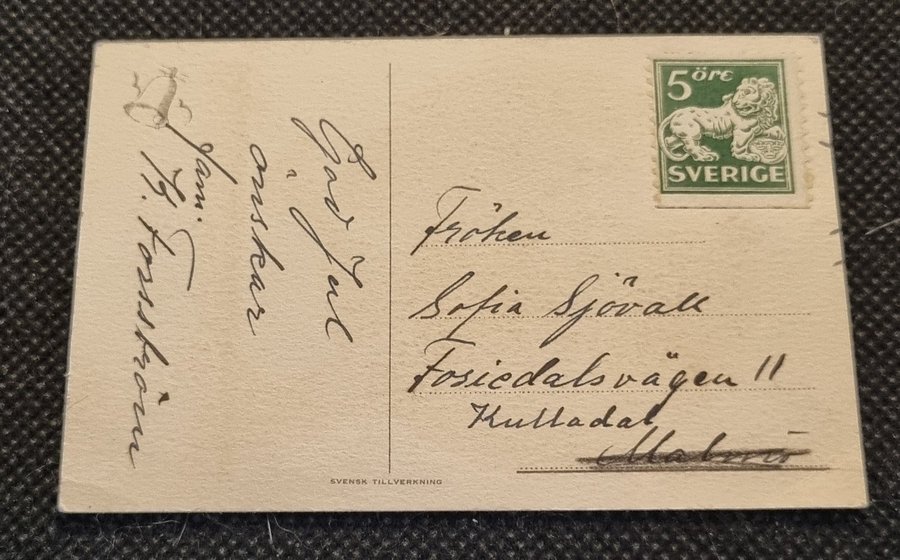 God Jul
önskar
fam.
B. Fossström
5 öre
SVERIGE
Fröken
Sofia Sjövall
Fosiedalsvägen 11
Kulladal
Malmö
SVENSK TILLVERKNING